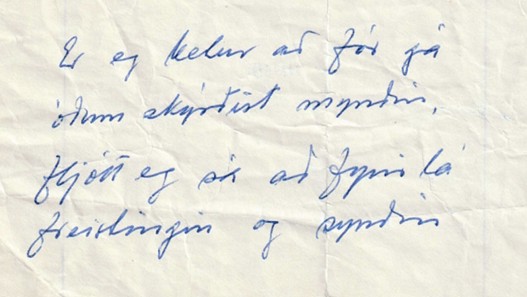 Er eg betur að fór gá
óðum skýrðist myndin,
fljótt eg sá að fyrir lá
freistingin og syndin